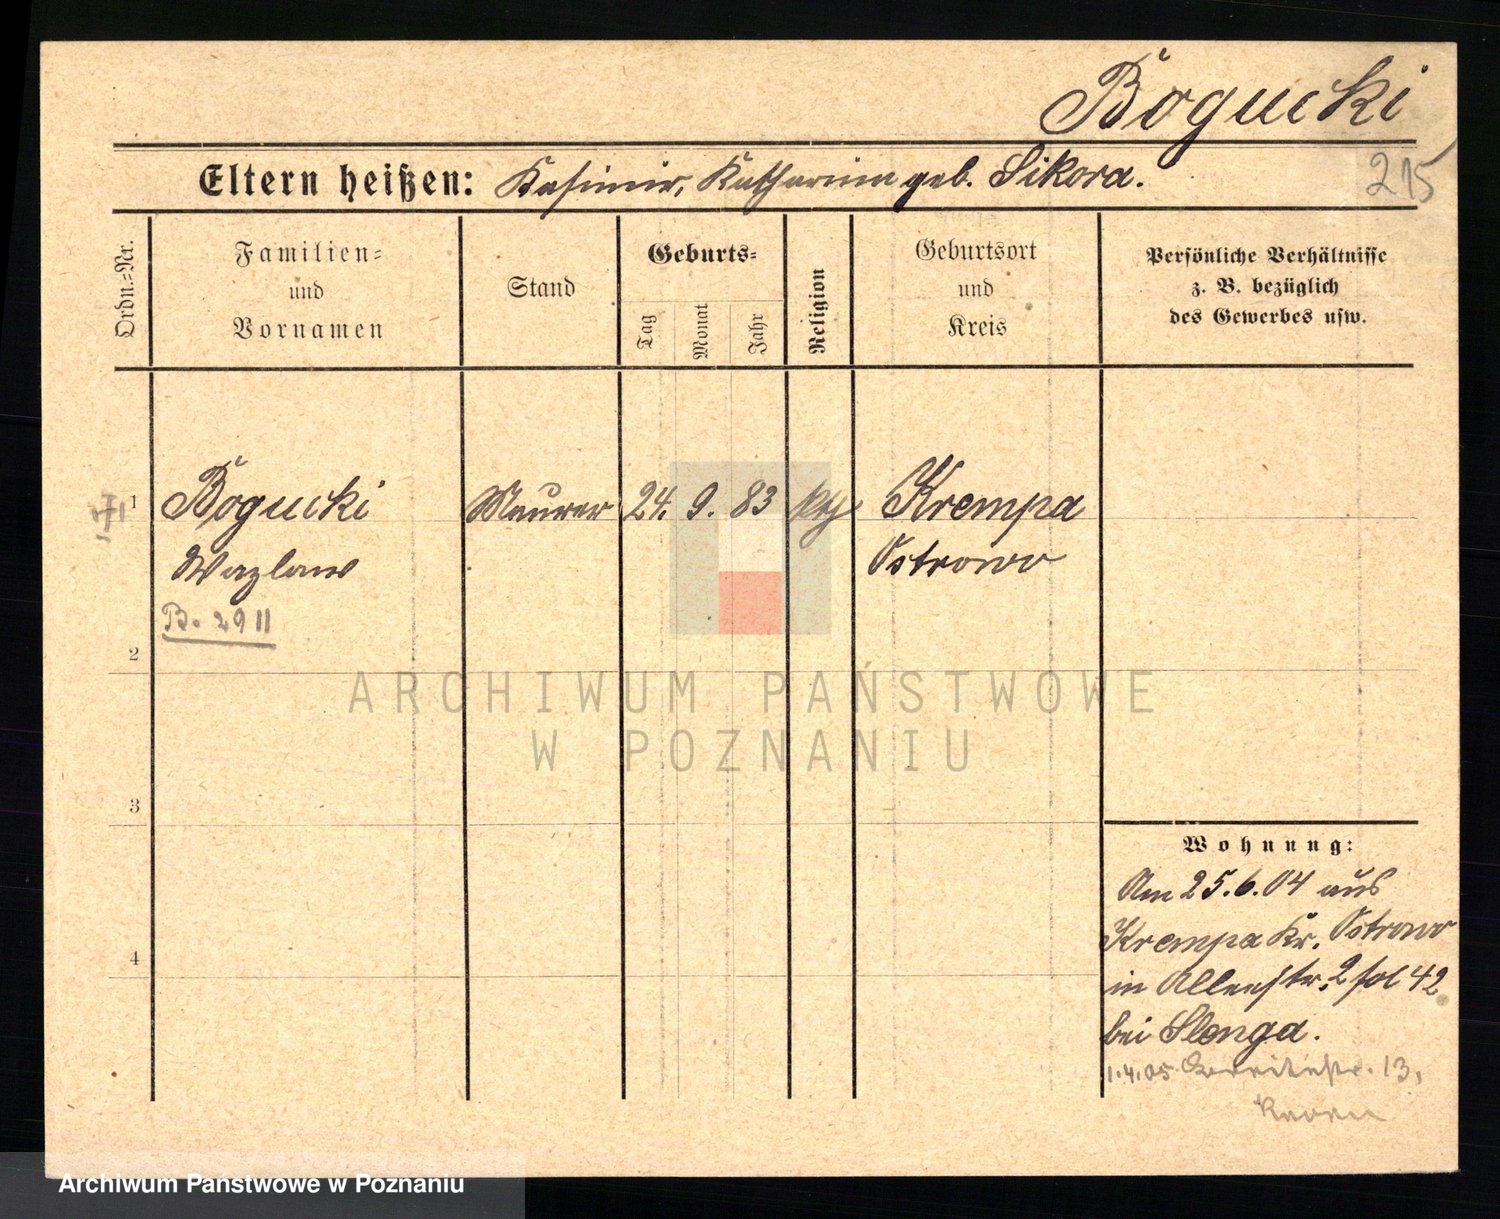 Bogucki
215
Eltern heißen: Kasimir, Katharina geb. Sikora.
Ordn.-Nr.
Familien-
und
Vornamen
Stand
Geburts-
Tag
Monat
Jahr
Religion
Geburtsort
und
Kreis
Persönliche Verhältnisse
z. B. bezüglich
des Gewerbes usw.
1 Bogucki Maurer 24. 9. 83 kth Krempa
Wazlaw Ostrowo
B. 2911
2
3
4
Wohnung:
Am 25.6.04 aus
Krempa Kr. Ostrowo
in Alleestr. 2 fol 42
bei Slenga.
1.4.05 13,
ARCHIWUM PAŃSTWOWE
W POZNANIU
Archiwum Państwowe w Poznaniu